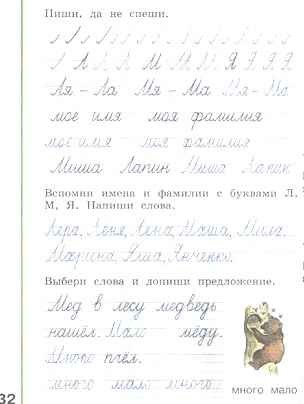 Пиши, да не спеши.
Л Л Л М М М Я Я Я Я
Ая – Ла Мя – Ма Мя – Ма
мое имя моя фамилия
мое имя моя фамилия
Миша Лапин Миша Лапин
Вспомни имена и фамилии с буквами Л,
М, Я. Напиши слова.
Лера, Лёня, Лена, Маша, Мила,
Марина, Яша, Янченко.
Выбери слова и допиши предложение.
Мёд в лесу медведь
нашёл. Мало мёду.
Много пчёл.
много мало много
много мало
32